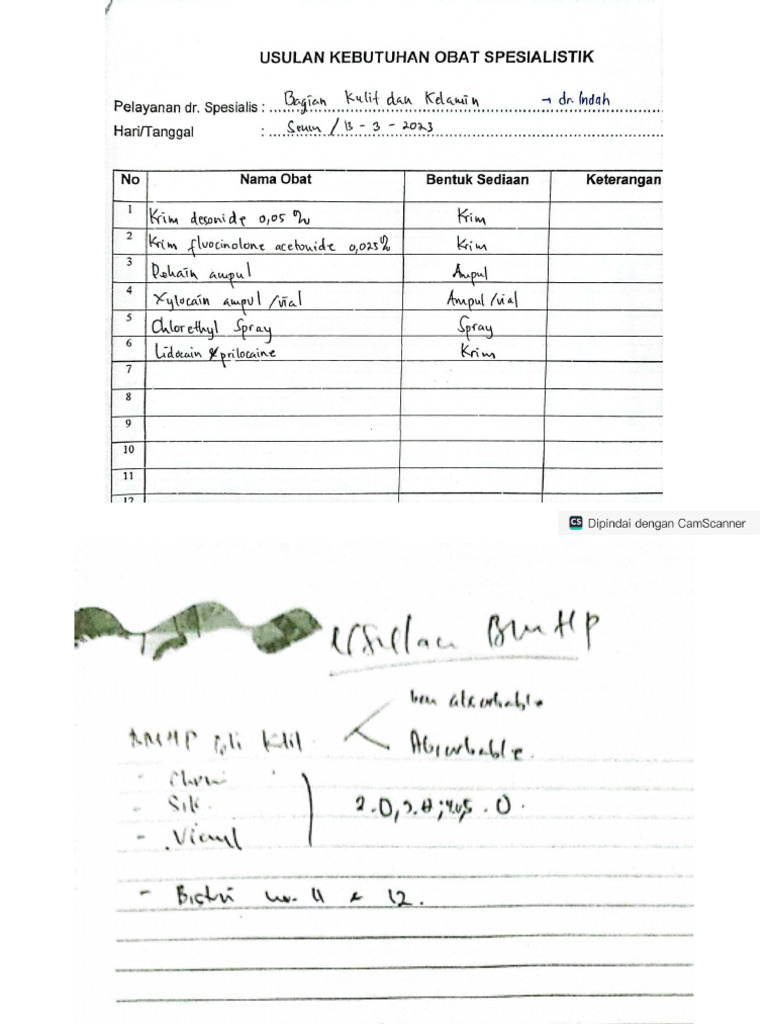 USULAN KEBUTUHAN OBAT SPESIALISTIK
Pelayanan dr. Spesialis : Bagian Kulit dan Kelamin → dr. Indah
Hari/Tanggal : Senin / 13 - 3 - 2023
No Nama Obat Bentuk Sediaan Keterangan
1 Krim desonide 0,05 % Krim
2 Krim fluocinolone acetonide 0,025% Krim
3 Pehain ampul Ampul
4 Xylocain ampul /vial Ampul /vial
5 Chlorethyl Spray Spray
6 Lidocain & prilocaine Krim
7
8
9
10
11
12
CS Dipindai dengan CamScanner
Usulan BMHP
non absorbable
BMHP Poli Kulit
Absorbable.
-
- Silk
2.0, 3.0; 4.0, 5.0.
- Vicryl
- Bisturi no. 11 & 12.